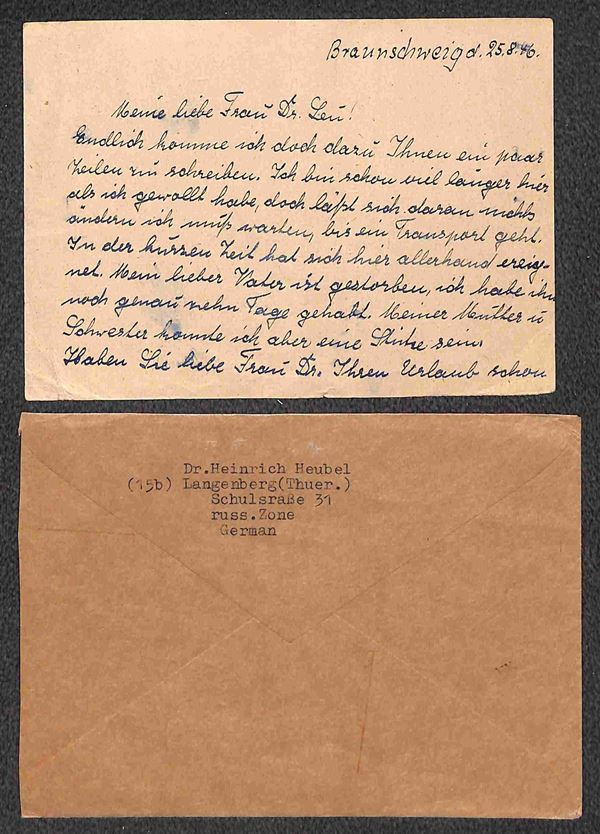 Braunschweig d. 25.8.46.
Meine liebe Frau Dr. Leu!
Endlich komme ich doch dazu Ihnen ein paar
Zeilen zu schreiben. Ich bin schon viel länger hier
als ich gewollt habe, doch läßt sich daran nichts
ändern ich muß warten, bis ein Transport geht.
In der kurzen Zeit hat sich hier allerhand ereig-
net. Mein lieber Vater ist gestorben, ich habe ihn
noch genau zehn Tage gehabt. Meiner Mutter u
Schwester konnte ich aber eine Stütze sein.
Haben Sie liebe Frau Dr. Ihren Urlaub schon
Dr.Heinrich Heubel
(15b) Langenberg(Thuer.)
Schulsraße 31
russ.Zone
German